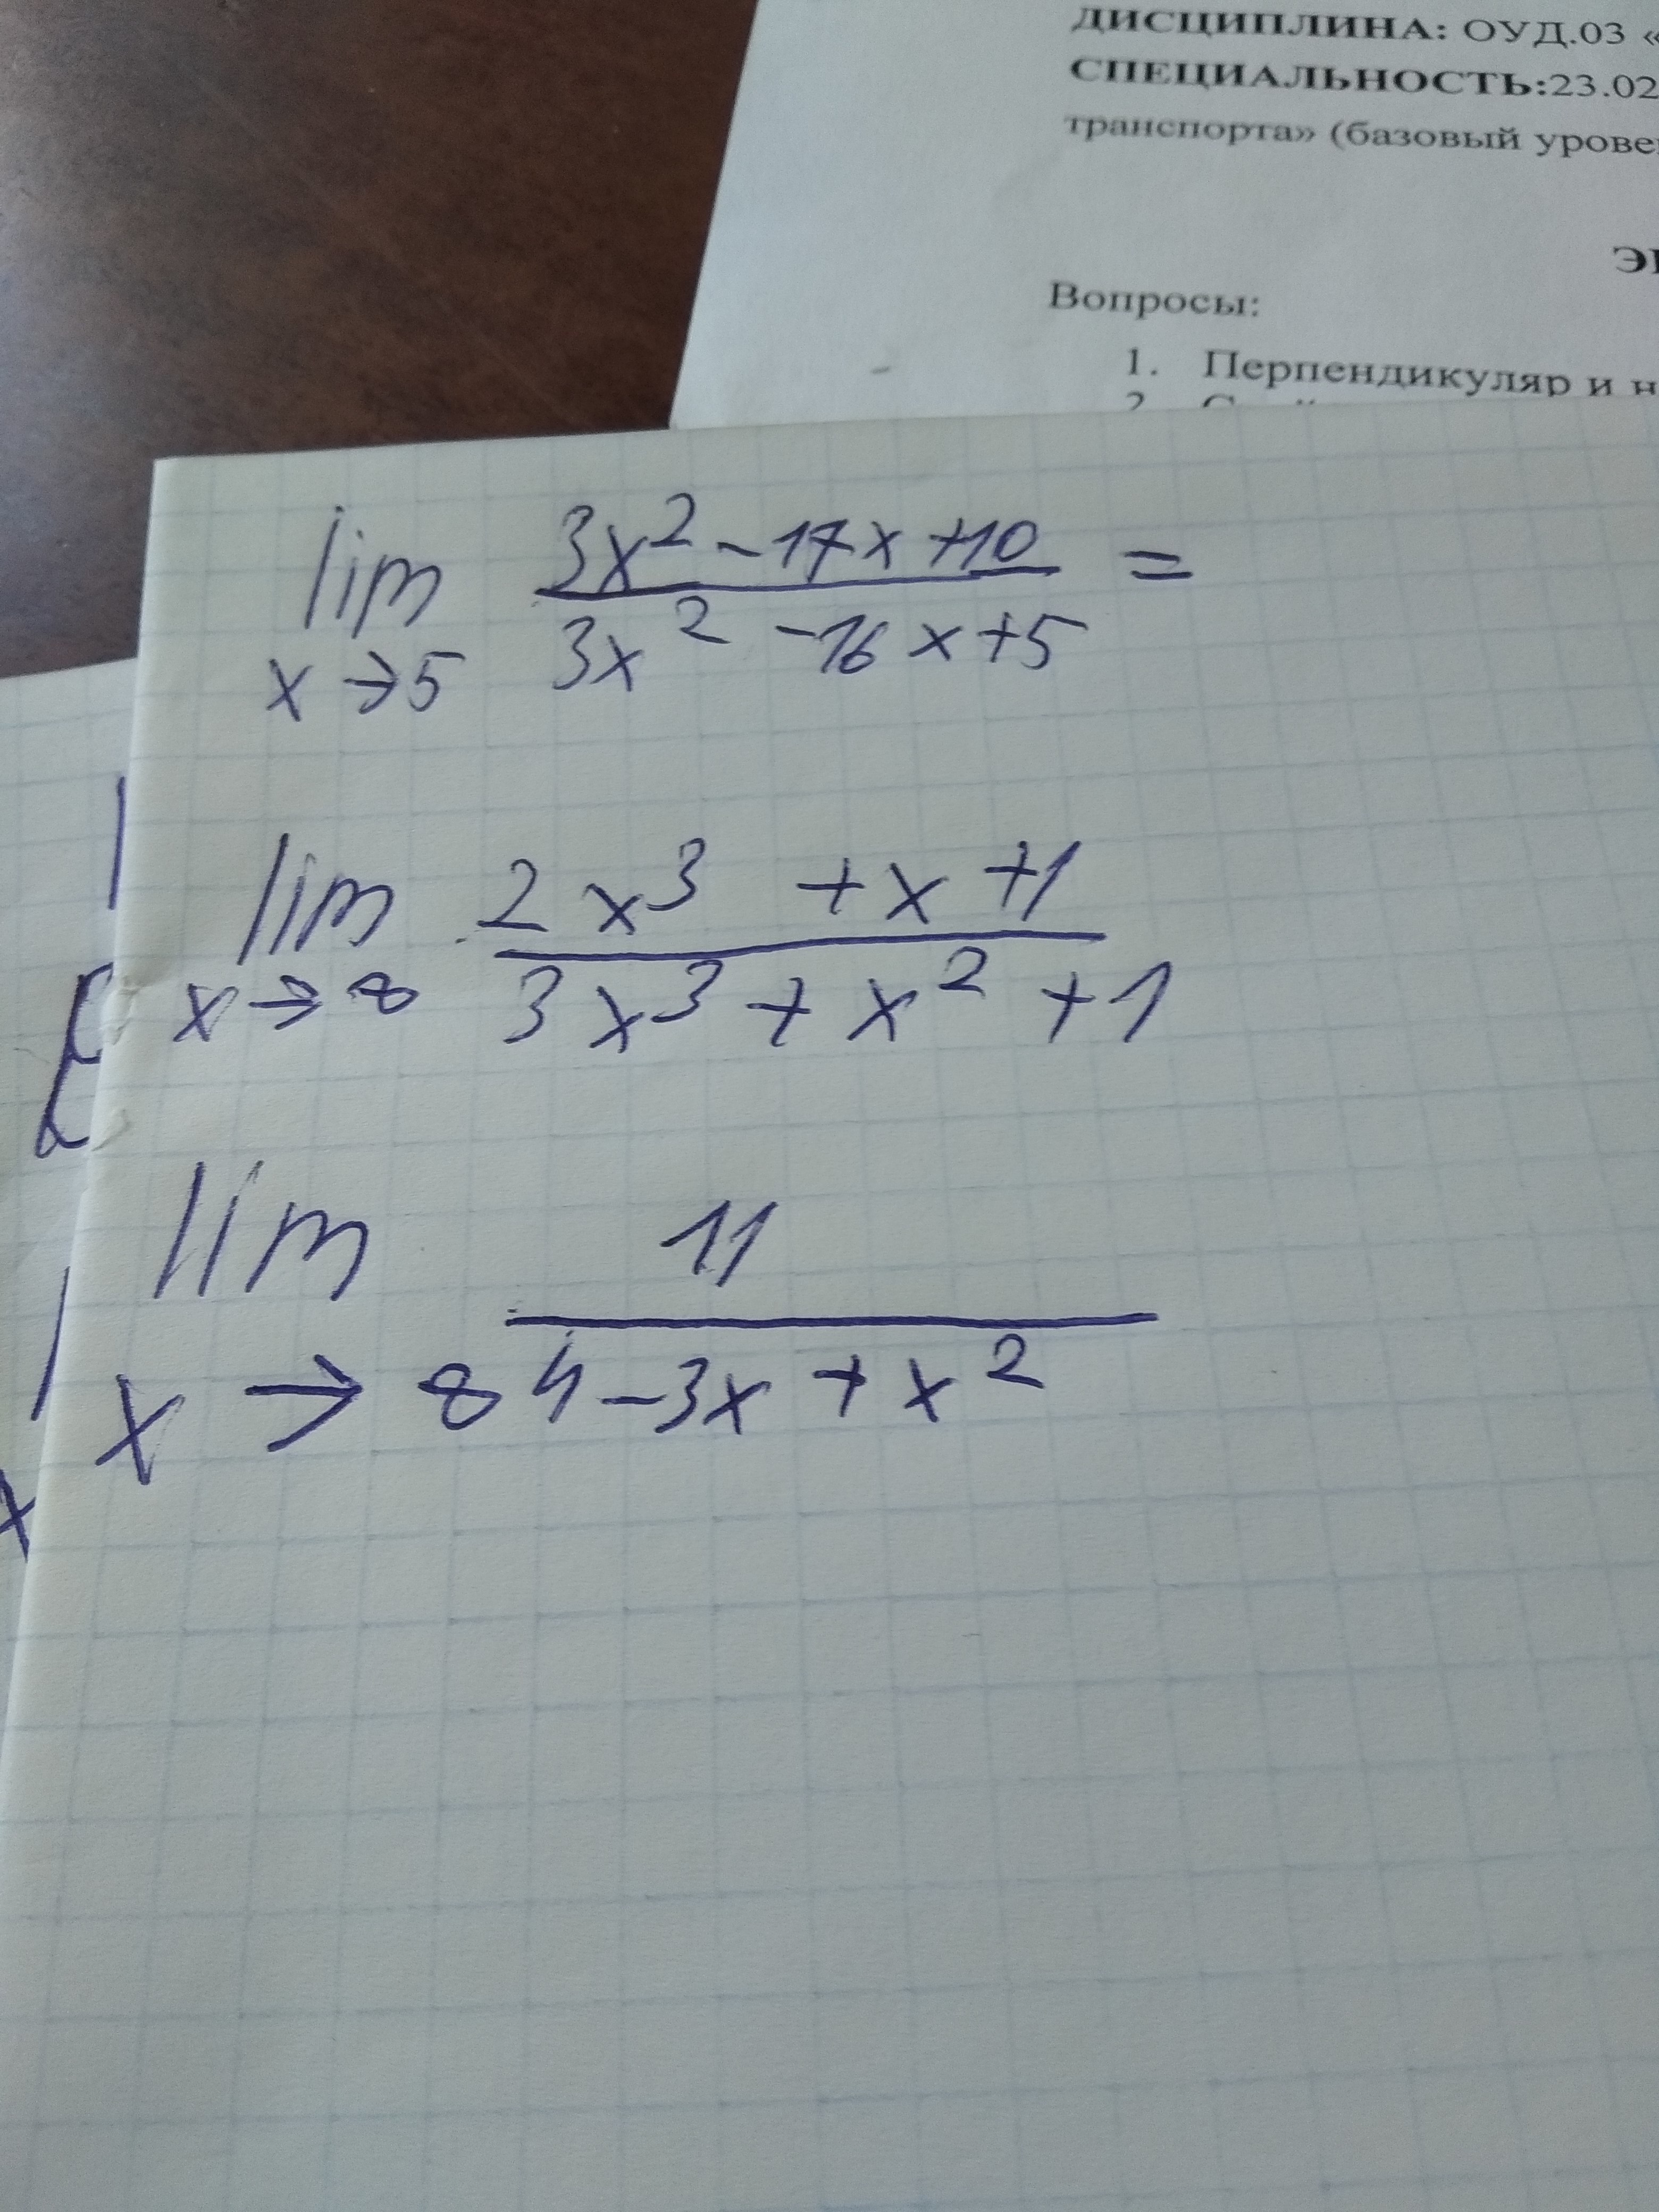 ДИСЦИПЛИНА: ОУД.03 «
СПЕЦИАЛЬНОСТЬ:23.02
транспорта» (базовый уровен
Вопросы:
1. Перпендикуляр и н
2.
lim x→5 (3x² -17x +10)/(3x² -16x +5) =
lim x→∞ (2x³ + x +1)/(3x³ + x² +1)
lim x→∞ 11/(4 -3x + x²)